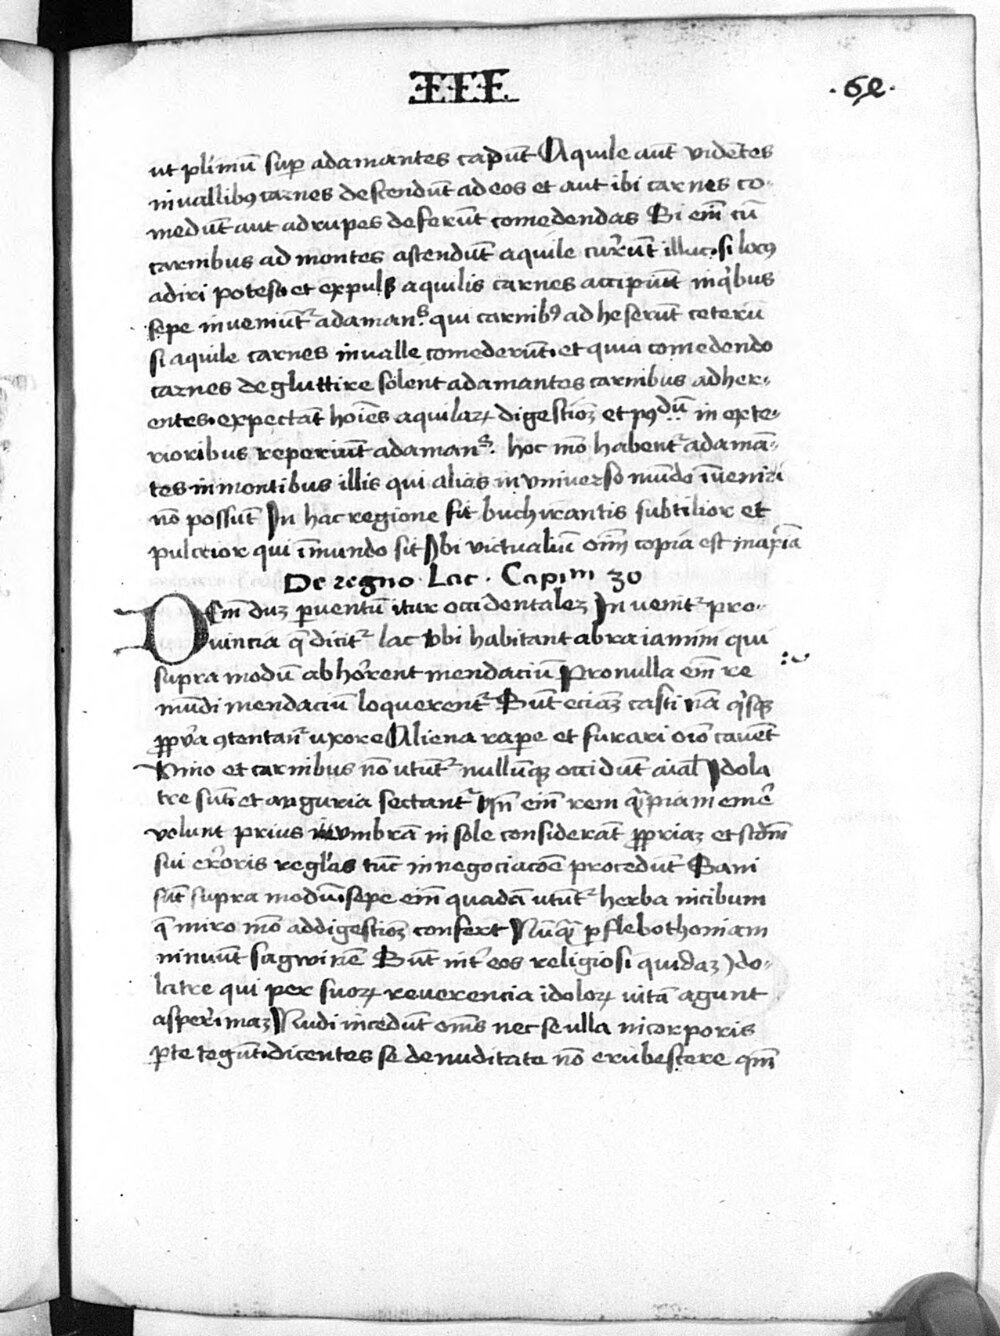 IIII
.62.
ut pl'imū sup adamantes capūt Aquile aūt vidētes
in vallib9 carnes descendūt ad eos et aut ibi carnes co-
medūt aut ad rupes deferūt comedendas Si em̄ cū
carnibus ad montes ascendūt aquile currūt illuc si loc9
adiri potest et expulsis aquilis carnes accipiūt in q'bus
sepe inveniūt' adaman.s. qui carnib9 adheserūt ceterū
si aquile carnes in valle comederūt et quia comedendo
carnes degluttire solent adamantes carnibus adher-
entes expectāt hoīes aquilaꝝ digestioꝫ et p9dū in exte-
rioribus reperiūt adaman.s. hoc mō habent' adamā-
tes in montibus illis qui alias in vniverso mūdo īveniri
nō possūt In hac regione fit buchirantis subtilior et
pulcrior qui ī mundo sit Ibi victualiū om̄ copia est maxīa
De regno Lac . Capim 30
Osm̄ duꝫ pventū itur occidentaleꝫ Invenit' pro-
vincia q̄ dicit' lac vbi habitant abraiamim qui
supra modū abhorrent mendaciū Pro nulla em̄ re
mūdi mendaciū loquerent' Sūt eciaꝫ casti nā q'sqꝫ
ꝓpria 9tentat' uxore Aliena rape et furari oīo cavēt
Vino et carnibus nō utūt' nullūqꝫ occidūt aīal Idola
tre sūt et auguria sectant' Qn̄ em̄ rem q̄piam emē
volunt prius umbrā in sole considerāt ꝓpriaꝫ et scdm̄
sui erroris regl'as tūc in negociacōe procedūt Sani
sūt supra modū sepe em̄ quadā utūt' herba in cibum
q̄ miro mō ad digestioꝫ confert Nūq̄ p flebothomiam
minuūt sagwinē Sūt int' eos religiosi quidaꝫ Ido-
latre qui per suoꝝ reverencia idoloꝝ vitā agunt
asperrimaꝫ Nudi incedūt om̄s nec se ulla in corporis
pte tegūt dicentes se de nuditate nō erubescere qm̄